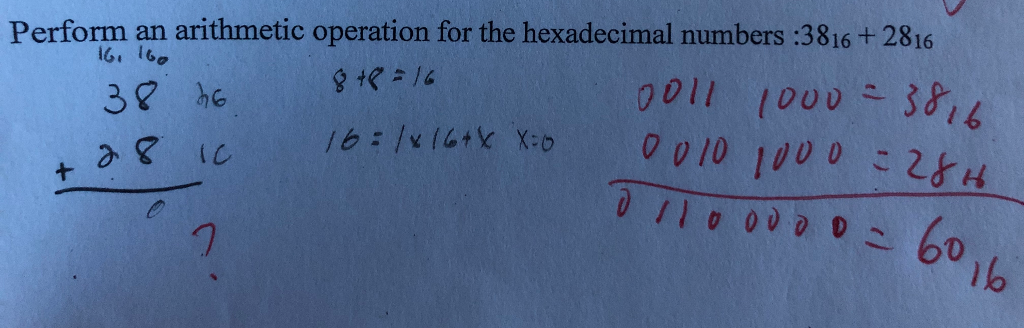 Perform an arithmetic operation for the hexadecimal numbers :38₁₆ + 28₁₆
16₁ 16₀
38 16
8 + 8 = 16
0011 1000 = 38₁₆
+ 28 16
16 = 1x16+x x=0
0010 1000 = 28₁₆
0
0110 0000 = 60₁₆
?